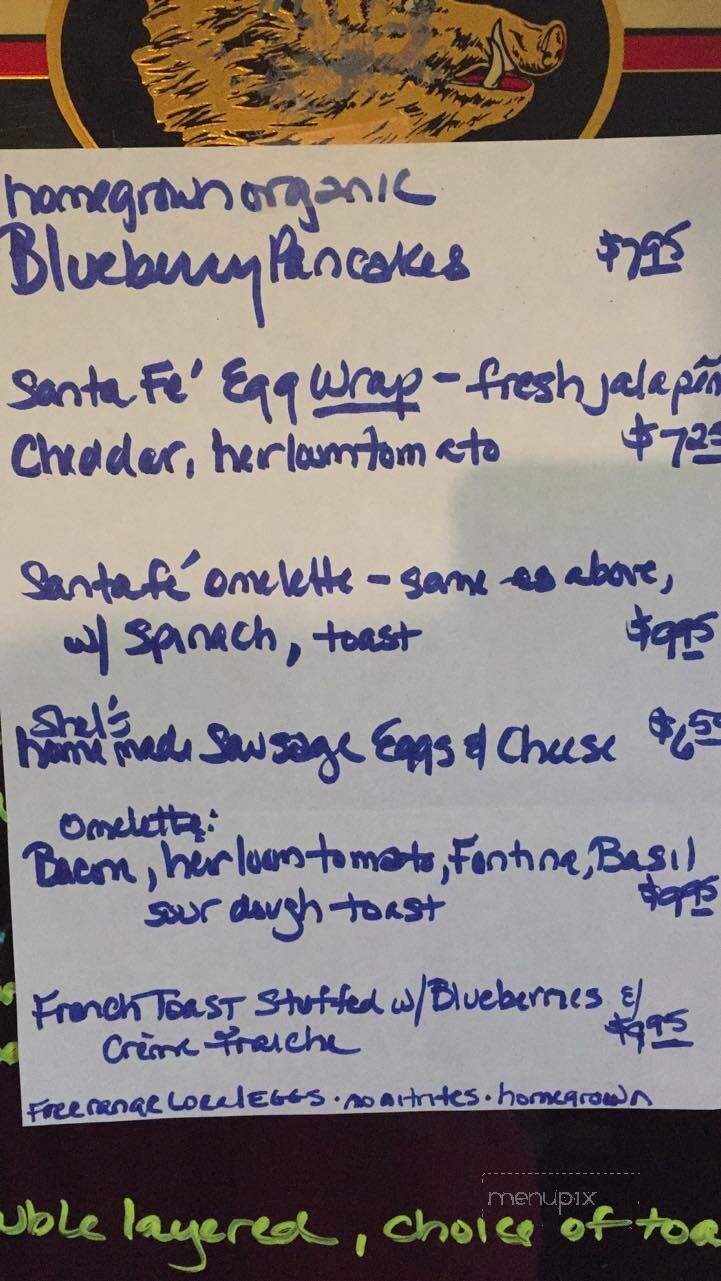 homegrown organic
Blueberry Pancakes $7.95
Santa Fe' Egg Wrap - fresh jalapeñ
Cheddar, heirloom tomato $7.25
Santa fe' omelette - same as above,
w/ spinach, toast $9.95
Shel's
homemade Sausage Eggs & Cheese $6.50
Omelette:
Bacon, heirloom tomato, Fontina, Basil
sour dough toast $9.95
French Toast Stuffed w/ Blueberries &
Crème fraiche $9.95
Free range Local EGGS · no nitrites · homegrown
uble layered, choice of toa
menupix